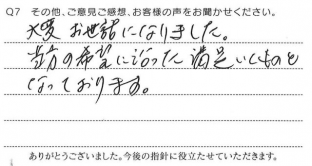 Q7 その他、ご意見ご感想、お客様の声をお聞かせください。
大変お世話になりました。
当方の希望に沿った満足いくものと
なっております。
ありがとうございました。今後の指針に役立たせていただきます。